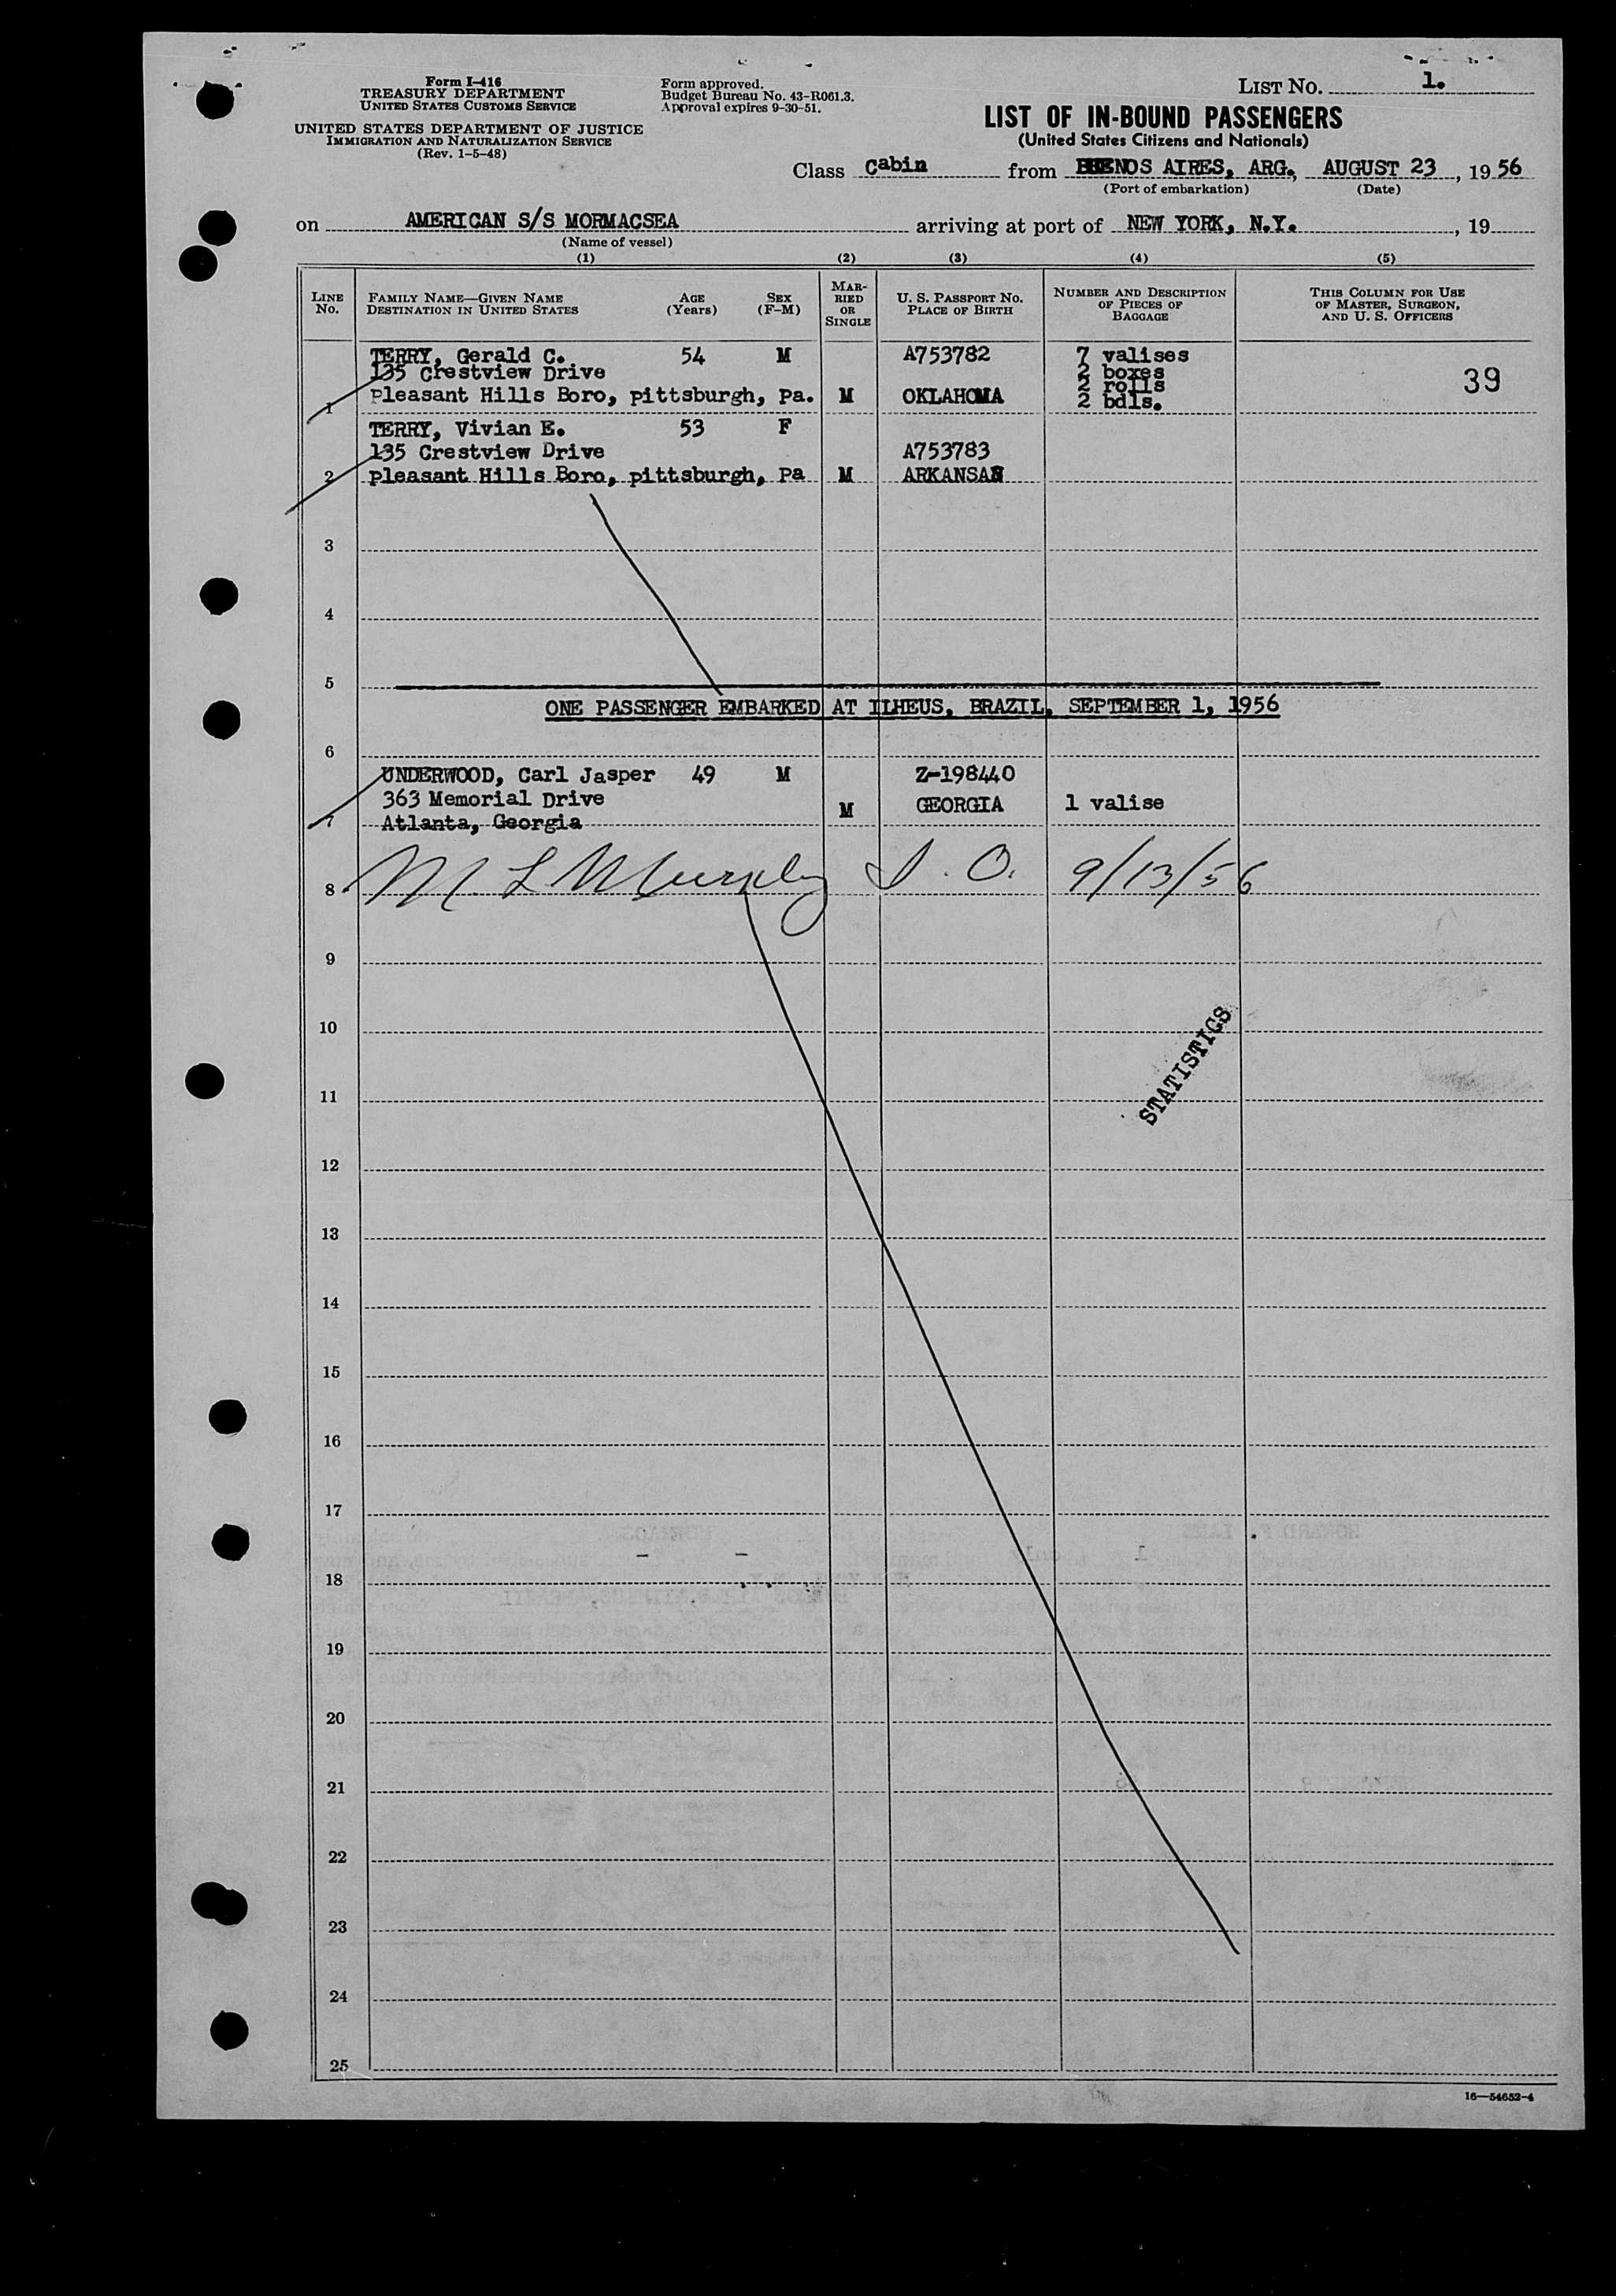 Form I-416
TREASURY DEPARTMENT
UNITED STATES CUSTOMS SERVICE
UNITED STATES DEPARTMENT OF JUSTICE
IMMIGRATION AND NATURALIZATION SERVICE
(Rev. 1-5-48)
Form approved.
Budget Bureau No. 43-R061.3.
Approval expires 9-30-51.
LIST No. 1.
LIST OF IN-BOUND PASSENGERS
(United States Citizens and Nationals)
Class Cabin from BUENOS AIRES, ARG., AUGUST 23, 19 56
(Port of embarkation) (Date)
on AMERICAN S/S MORMACSEA arriving at port of NEW YORK, N.Y., 19
(Name of vessel)
(1) (2) (3) (4) (5)
LINE No. FAMILY NAME—GIVEN NAME DESTINATION IN UNITED STATES AGE (Years) SEX (F-M) MARRIED OR SINGLE U. S. PASSPORT No. PLACE OF BIRTH NUMBER AND DESCRIPTION OF PIECES OF BAGGAGE THIS COLUMN FOR USE OF MASTER, SURGEON, AND U. S. OFFICERS
TERRY, Gerald C. 54 M A753782 7 valises
135 Crestview Drive 2 boxes
2 rolls 39
1 Pleasant Hills Boro, pittsburgh, pa. M OKLAHOMA 2 bdls.
TERRY, Vivian E. 53 F
135 Crestview Drive A753783
2 pleasant Hills Boro, pittsburgh, pa M ARKANSAS
3
4
5
ONE PASSENGER EMBARKED AT ILHEUS, BRAZIL, SEPTEMBER 1, 1956
6
UNDERWOOD, Carl Jasper 49 M Z-198440
363 Memorial Drive M GEORGIA 1 valise
7 Atlanta, Georgia
8 M L Murphy I. O. 9/13/56
9
10
STATISTICS
11
12
13
14
15
16
17
18
19
20
21
22
23
24
25
16—54652-4